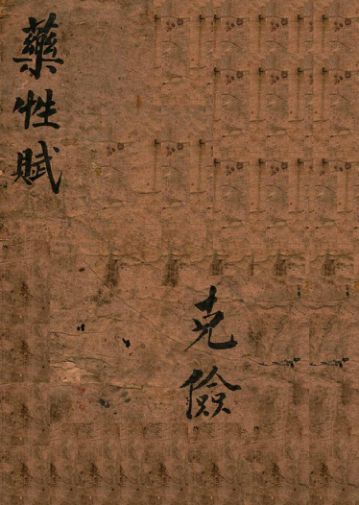 藥性賦
克儉